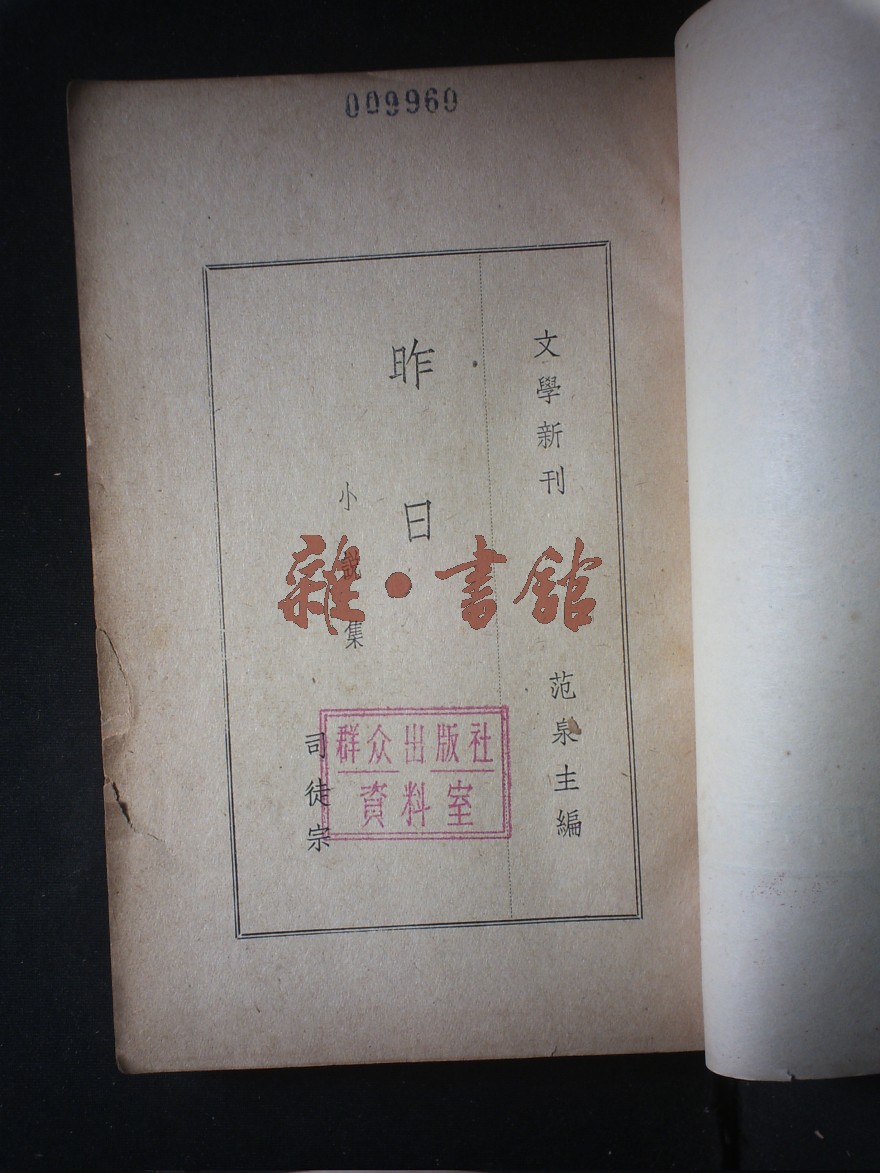 009960
文學新刊
范泉主編
昨日
小說集
司徒宗
群众出版社
資料室
雜·書館